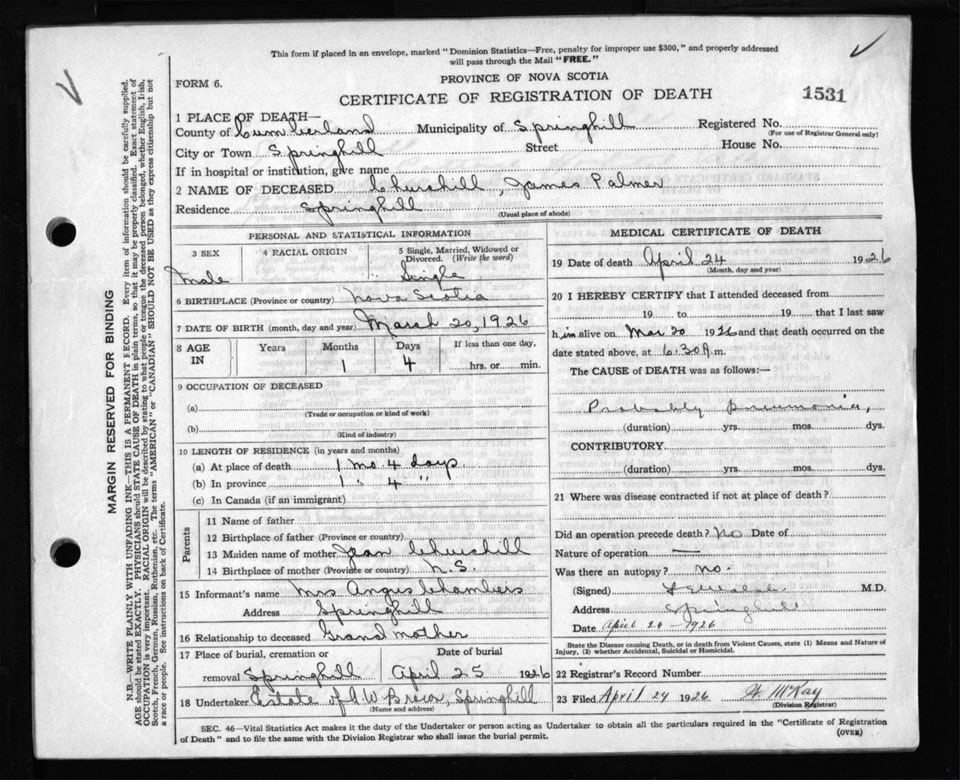 This form if placed in an envelope, marked "Dominion Statistics—Free, penalty for improper use $300," and properly addressed
will pass through the Mail "FREE."
FORM 6.
PROVINCE OF NOVA SCOTIA
CERTIFICATE OF REGISTRATION OF DEATH
1531
1 PLACE OF DEATH—
County of Cumberland Municipality of Springhill Registered No.
(For use of Registrar General only)
City or Town Springhill Street House No.
If in hospital or institution, give name
2 NAME OF DECEASED Churchill, James Palmer
Residence Springhill
(Usual place of abode)
PERSONAL AND STATISTICAL INFORMATION
3 SEX 4 RACIAL ORIGIN 5 Single, Married, Widowed or
Divorced. (Write the word)
Male Single
6 BIRTHPLACE (Province or country) Nova Scotia
7 DATE OF BIRTH (month, day and year) March 20, 1926
8 AGE IN Years Months Days If less than one day,
1 4 hrs. or min.
9 OCCUPATION OF DECEASED
(a)
(Trade or occupation or kind of work)
(b)
(Kind of industry)
10 LENGTH OF RESIDENCE (in years and months)
(a) At place of death 1 mo 4 days
(b) In province 1 " 4 "
(c) In Canada (if an immigrant)
Parents
11 Name of father
12 Birthplace of father (Province or country)
13 Maiden name of mother Jean Churchill
14 Birthplace of mother (Province or country) N.S.
15 Informant's name Mrs Angus Chambers
Address Springhill
16 Relationship to deceased Grand mother
17 Place of burial, cremation or Date of burial
removal Springhill April 25 1926
18 Undertaker Estate of A W Brown, Springhill
(Name and address)
MEDICAL CERTIFICATE OF DEATH
19 Date of death April 24 1926
(Month, day and year)
20 I HEREBY CERTIFY that I attended deceased from
19 to 19 that I last saw
him alive on Mar 20 1926 and that death occurred on
date stated above, at 6.30 A.m.
The CAUSE of DEATH was as follows:—
Probably pneumonia,
(duration) yrs. mos. dys.
CONTRIBUTORY
(duration) yrs. mos. dys.
21 Where was disease contracted if not at place of death?
Did an operation precede death? No Date of
Nature of operation —
Was there an autopsy? no.
(Signed) M.D.
Address Springhill
Date April 24 - 1926
State the Disease causing Death, or in death from Violent Causes, state (1) Means and Nature of
Injury, (2) whether Accidental, Suicidal or Homicidal.
22 Registrar's Record Number
23 Filed April 24 1926 McKay
(Division Registrar)
SEC. 46—Vital Statistics Act makes it the duty of the Undertaker or person acting as Undertaker to obtain all the particulars required in the "Certificate of Registration
of Death" and to file the same with the Division Registrar who shall issue the burial permit.
(OVER)
MARGIN RESERVED FOR BINDING
N.B.—WRITE PLAINLY WITH UNFADING INK—THIS IS A PERMANENT RECORD. Every item of information should be carefully supplied.
AGE should be stated EXACTLY. PHYSICIANS should STATE CAUSE OF DEATH in plain terms, so that it may be properly classified. Exact statement of
OCCUPATION is very important. RACIAL ORIGIN will be described by stating to what people or tongue the deceased person belonged, whether English, Irish,
Scotch, French, German, Russian, Ruthenian, etc. The terms "AMERICAN" or "CANADIAN" SHOULD NOT BE USED as they express citizenship but not
a race or people. See instructions on back of Certificate.